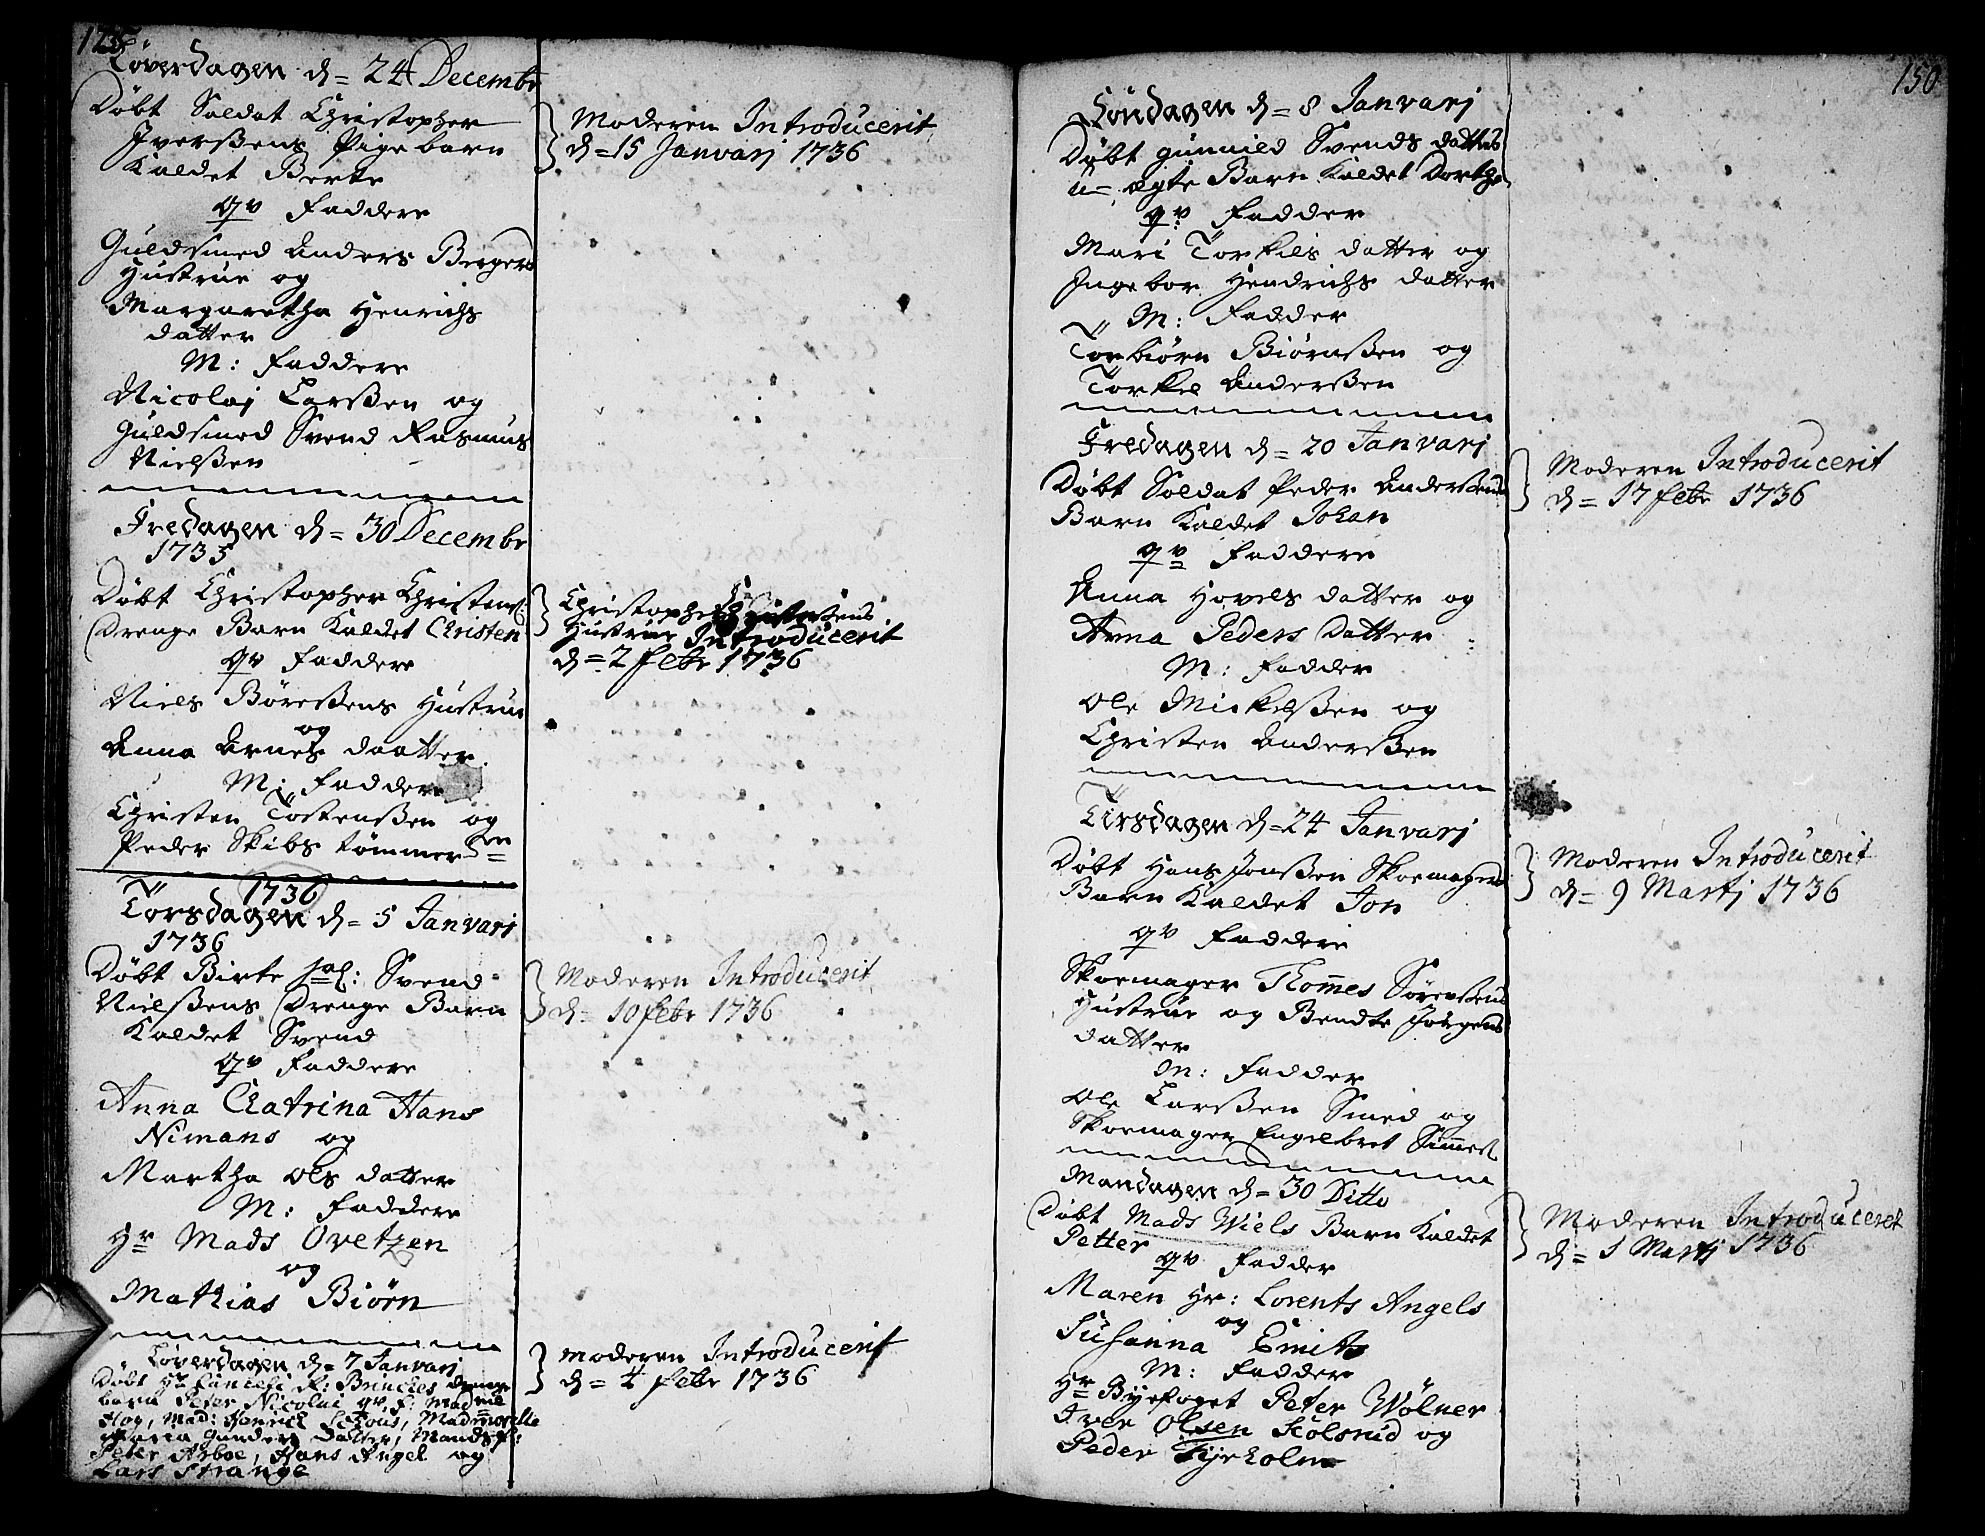 Löverdagen d= 24 Decembr
Döbt Soldat Christopher
Iverßens Pige barn
Kaldet Berte
qv Faddere
Guldsmed Anders Bergers
Hustrue og
Margaretha Henrichs
datter
M: Faddere
Nicolaj Larßen og
Guldsmed Svend Rasmus
Nielßen
Moderen Introducerit
d= 15 Janvarj 1736
Fredagen d= 30 Decembr
1735
Döbt Christopher Christens:
Drenge Barn Kaldet Christen
qv Faddere
Niels Böreßens Hustrue
og
Anna Arnes daatter.
M: Faddere
Christen Tostenßen og
Peder Skibs tömmer
Christopher
Hustrue Introducerit
d= 2 febr 1736
1736
Torsdagen d= 5 Janvarj
1736
Döbt Birte sal: Svend
Nielßens Drenge Barn
Kaldet Svend
qv Faddere
Anna Chatrina Hans
Nimans og
Martha Ols datter
M: Faddere
Hr Mads Ovetzen
og
Mathias Biörn
Moderen Introducerit
d= 10 febr 1736
Löverdagen d= 7 Janvarj
Döbt Hr Brinches drenge
barn Peter Nicolai qv. f: Madme
Hoy, Mad: Henrich Madmoiselle
Maria Gunders Datter, Mands f:
Peter Arboe, Hans Angel og
Lars Strange
Moderen Introducerit
d= 4 febr 1736
150
Söndagen d= 8 Janvarj
Döbt Gunnild Svends datters
u= ægte Barn Kaldet Dorthe
qv Fadder
Mari Torkils datter og
Ingebor Hendrichs datter
M: Fadder
Torbiörn Biörnßen og
Torkel Anderßen
Fredagen d= 20 Janvarj
Döbt Soldat Peder Anderßens
Barn Kaldet Johan
qv Faddere
Anna Hovels datter og
Anna Peders Datter
M: Fadder
Ole Mickelßen og
Christen Anderßen
Moderen Introducerit
d= 17 febr 1736
Tirsdagen d= 24 Janvarj
Döbt Hans Jonßen Skoemagers
Barn Kaldet Jon
qv Faddere
Skoemager Thom̄es Sörenßens
Hustrue og Bendte Jörgens
datter
M: Fadder
Ole Larßen Smed og
Skoemager Engelbret
Moderen Introducerit
d= 9 Martj 1736
Mandagen d= 30 Ditto
Döbt Mads Wiels Barn Kaldet
Petter
qv Fadder
Maren Hr: Lorents Angels
og
Susanna Smith
M: Fadder
Hr Byefoget Peter Wölner
Iver Olsen Kolsrud og
Peder Fyrholm
Moderen Introduceret
d= 1 Martj 1736